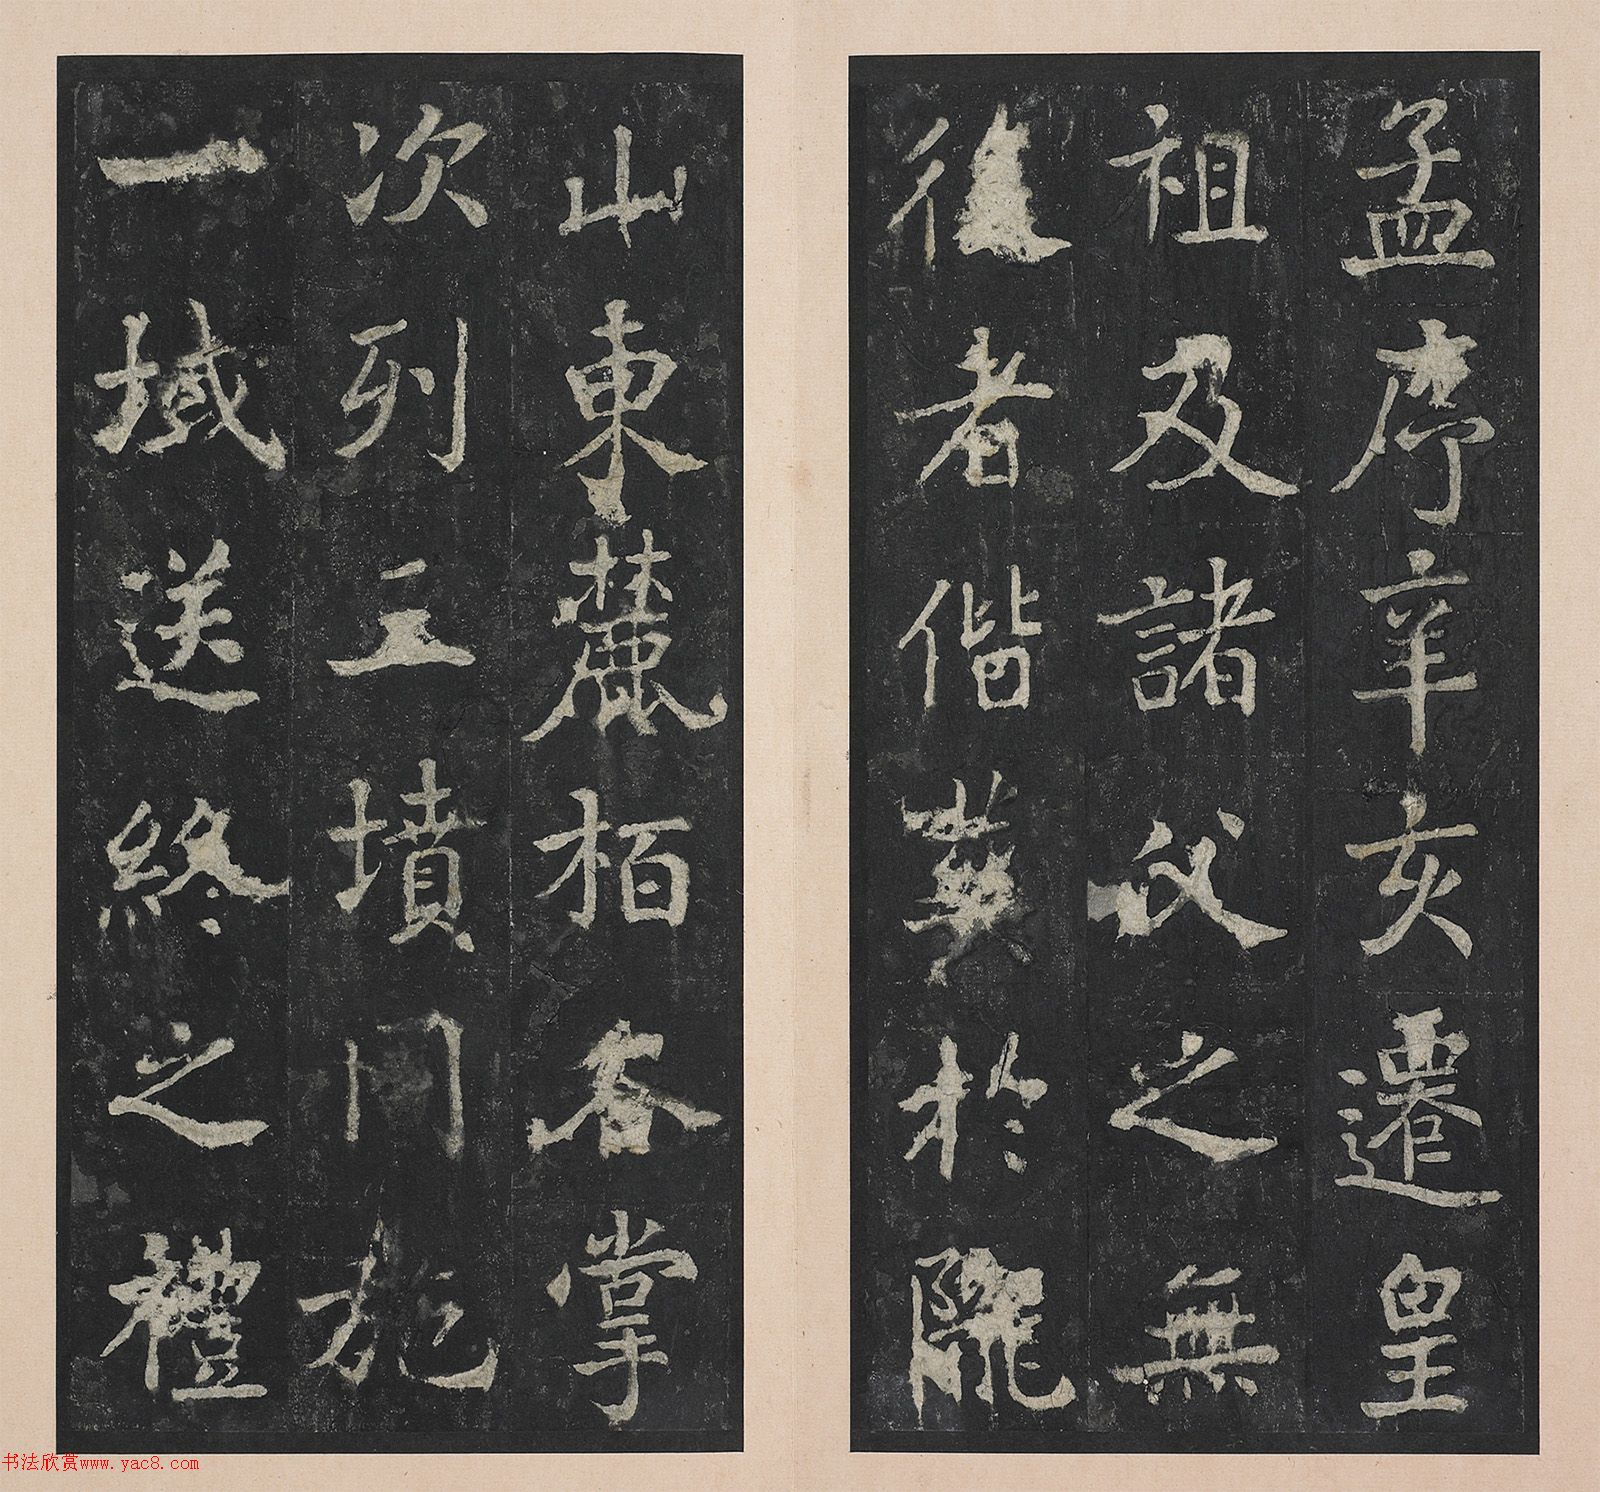 孟序辛亥遷皇
祖及諸父之無
後者偕葬於隴
山東麓栢谷掌
次列三墳同施
一域送終之禮
书法欣赏www.yac8.com